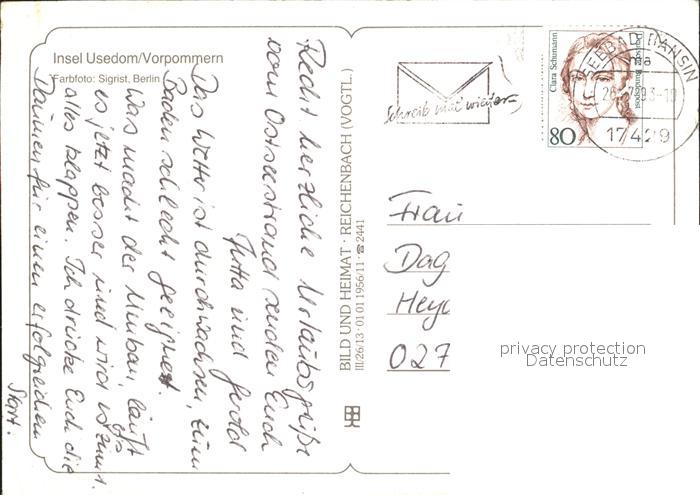 Insel Usedom/Vorpommern
Farbfoto: Sigrist, Berlin
Recht herzliche Urlaubsgrüße
vom Ostseestrand senden Euch
Jutta und Gerold
Das Wetter ist durchwachsen, zum
Baden schlecht geeignet.
Was macht der Umbau, läuft
es jetzt besser und wird
alles klappen. Ich drücke Euch die
Daumen für einen erfolgreichen
Start.
BILD UND HEIMAT · REICHENBACH (VOGTL.)
III/26/13 · 01 01 1956/11 · ☎ 2441
Schreib mal wieder
Clara Schumann
Deutsche Bundespost
80
SEEBAD BANSIN
ma
17429
Frau
Dag
Hey
027
privacy protection
Datenschutz